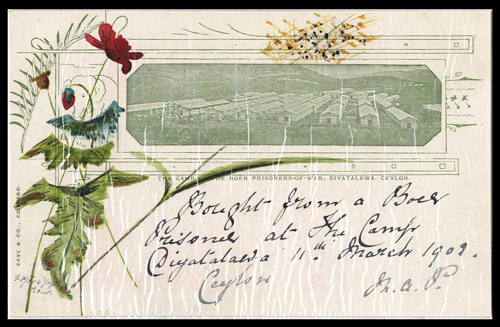 THE CAMP OF THE BOER PRISONERS-OF-WAR, DIYATALAWA, CEYLON.
Bought from a Boer
Prisoner at The Camp
Diyatalawa 11th March 1902.
Ceylon
M.A.P.
CAVE & CO., COLOMBO.